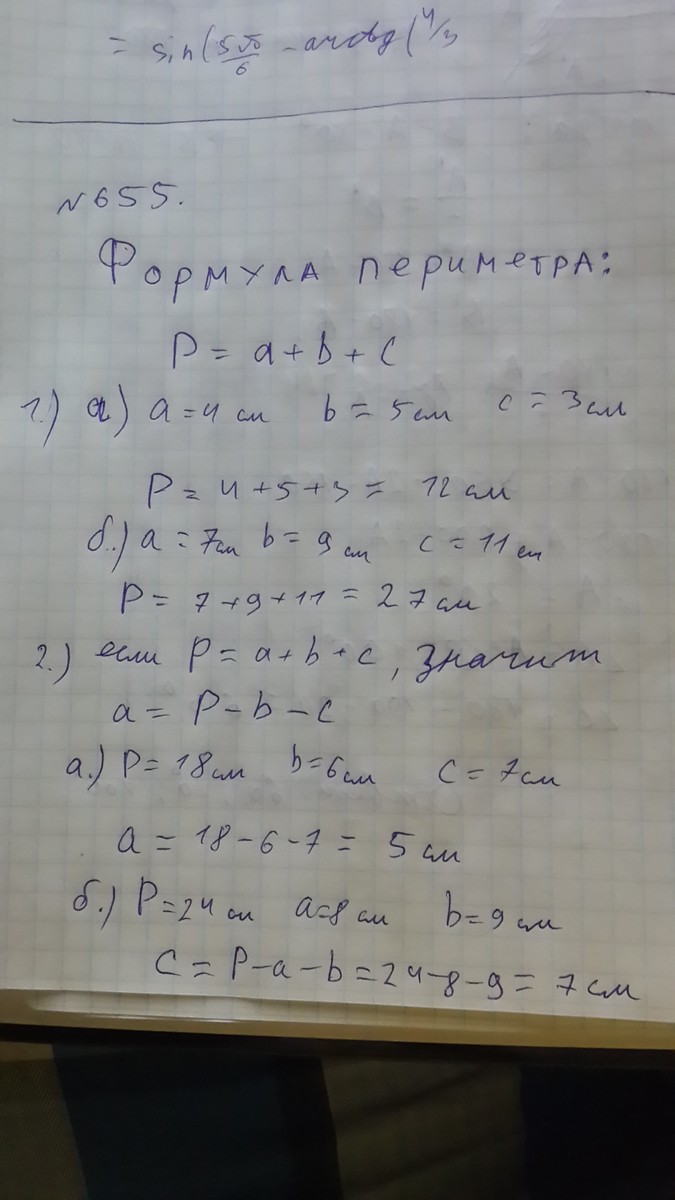 = sin(5π/6 - arctg(4/3
№655.
Формула периметра:
P = a + b + c
1.) а) a = 4 см b = 5 см c = 3 см
P = 4 + 5 + 3 = 12 см
б.) a = 7 см b = 9 см c = 11 см
P = 7 + 9 + 11 = 27 см
2.) если P = a + b + c, значит
a = P - b - c
а.) P = 18 см b = 6 см c = 7 см
a = 18 - 6 - 7 = 5 см
б.) P = 24 см a = 8 см b = 9 см
c = P - a - b = 24 - 8 - 9 = 7 см